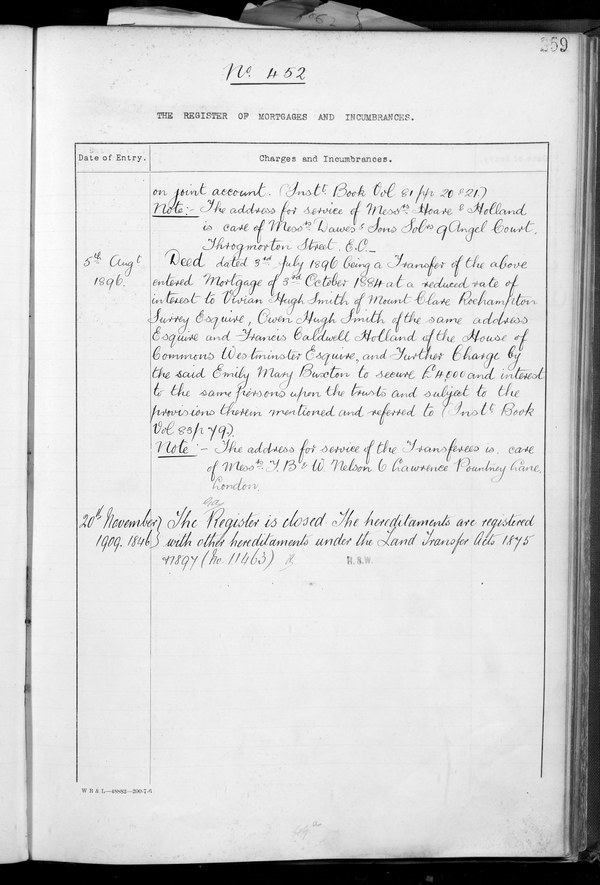 259
No. 452
THE REGISTER OF MORTGAGES AND INCUMBRANCES.
Date of Entry. Charges and Incumbrances.
on joint account. (Instt. Book Vol 81 pp 20 & 21)
Note:- The address for service of Messrs. Hoare & Holland
is care of Messrs. Dawes & Sons Solrs 9 Angel Court,
Throgmorton Street. E.C.
5th Augt Deed dated 3rd July 1896 being a Transfer of the above
1896. entered Mortgage of 3rd October 1884 at a reduced rate of
interest to Vivian Hugh Smith of Mount Clare Roehampton
Surrey Esquire, Owen Hugh Smith of the same address
Esquire and Francis Caldwell Holland of the House of
Commons Westminster Esquire, and Further Charge by
the said Emily Mary Buxton to secure £4,000 and interest
to the same persons upon the trusts and subject to the
provisions therein mentioned and referred to (Instt. Book
Vol 83 p 79).
Note:- The address for service of the Transferees is care
of Messrs. T. B. & W. Nelson 6 Lawrence Pountney Lane
London.
20th November The Register is closed The hereditaments are registered
1909. 1846 with other hereditaments under the Land Transfer Acts 1875
& 1897 (No. 11463) H.S.W.
W B & L